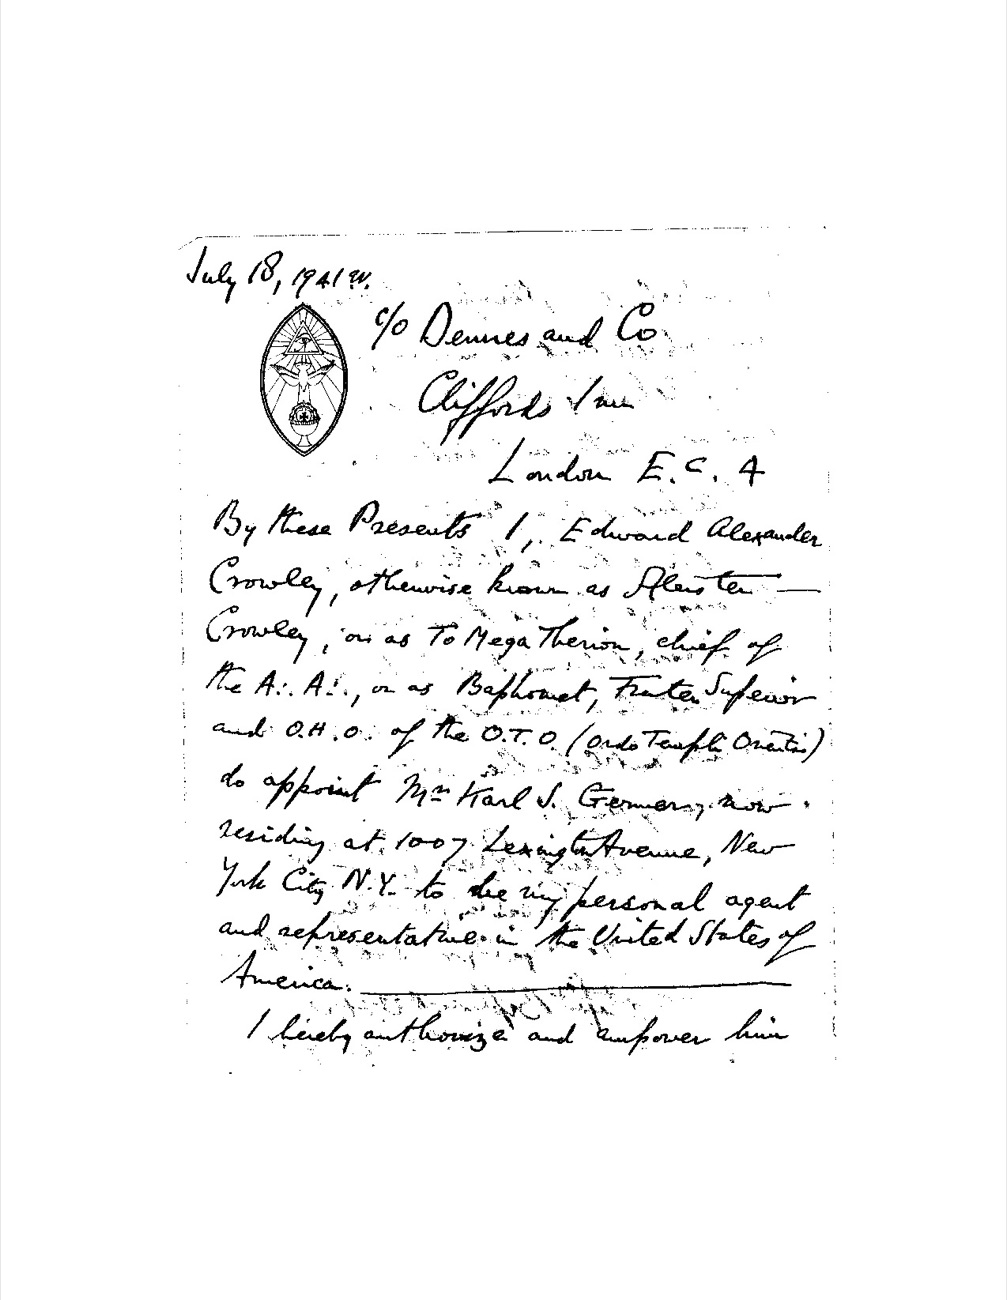 July 18, 1941 e.v.
c/o Dennes and Co
Cliffords Inn
London E.C. 4
By these Presents I, Edward Alexander
Crowley, otherwise known as Aleister —
Crowley, or as To Mega Therion, chief of
the A∴ A∴, or as Baphomet, Frater Superior
and O.H.O. of the O.T.O. (Ordo Templi Orientis)
do appoint Mr Karl J. Germer, now
residing at 1007 Lexington Avenue, New
York City N.Y. to be my personal agent
and representative in the United States of
America.
I hereby authorize and empower him